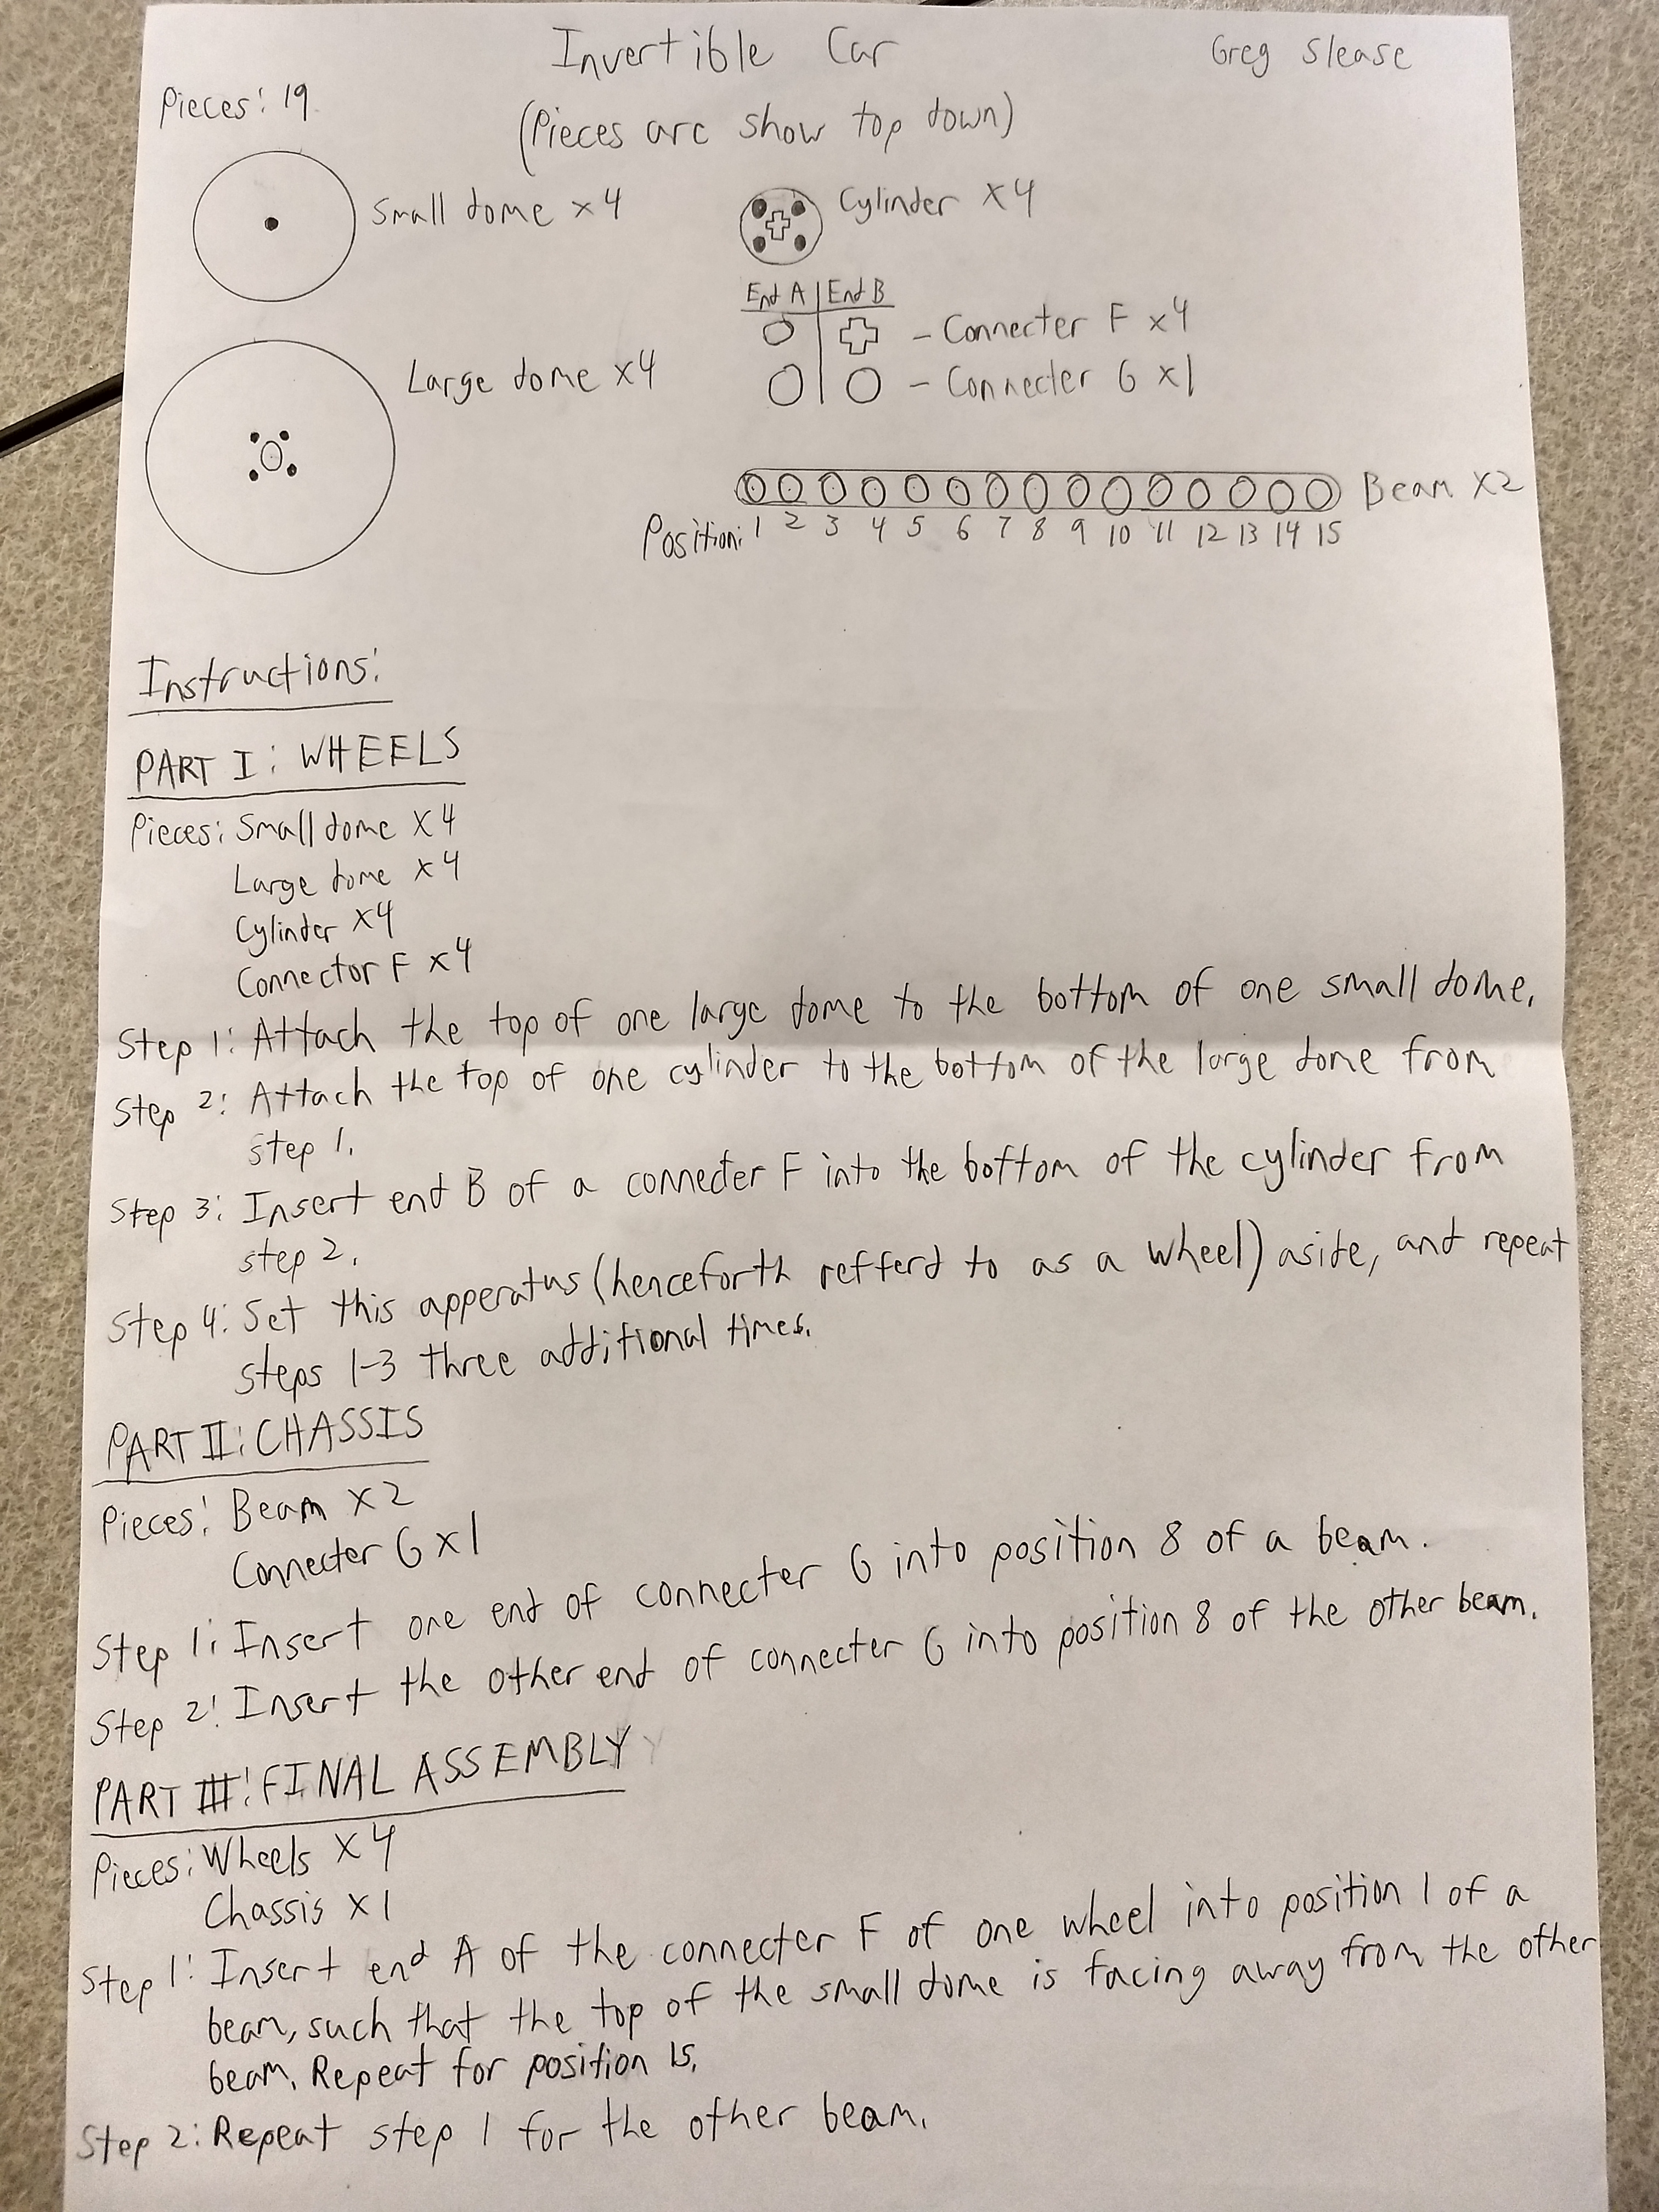 Invertible Car
Greg Slease
Pieces: 19
(Pieces are show top down)
Small dome x4
Cylinder x4
End A | End B
- Connecter F x4
- Connecter G x1
Large dome x4
Beam x2
Position: 1 2 3 4 5 6 7 8 9 10 11 12 13 14 15
Instructions:
PART I: WHEELS
Pieces: Small dome x4
Large dome x4
Cylinder x4
Connector F x4
Step 1: Attach the top of one large dome to the bottom of one small dome.
Step 2: Attach the top of one cylinder to the bottom of the large dome from
step 1.
Step 3: Insert end B of a connecter F into the bottom of the cylinder from
step 2.
Step 4: Set this apparatus (henceforth refferd to as a wheel) aside, and repeat
steps 1-3 three additional times.
PART II: CHASSIS
Pieces: Beam x2
Connecter G x1
Step 1: Insert one end of connecter G into position 8 of a beam.
Step 2: Insert the other end of connecter G into position 8 of the other beam.
PART III: FINAL ASSEMBLY
Pieces: Wheels x4
Chassis x1
Step 1: Insert end A of the connecter F of one wheel into position 1 of a
beam, such that the top of the small dome is facing away from the other
beam. Repeat for position 15.
Step 2: Repeat step 1 for the other beam.